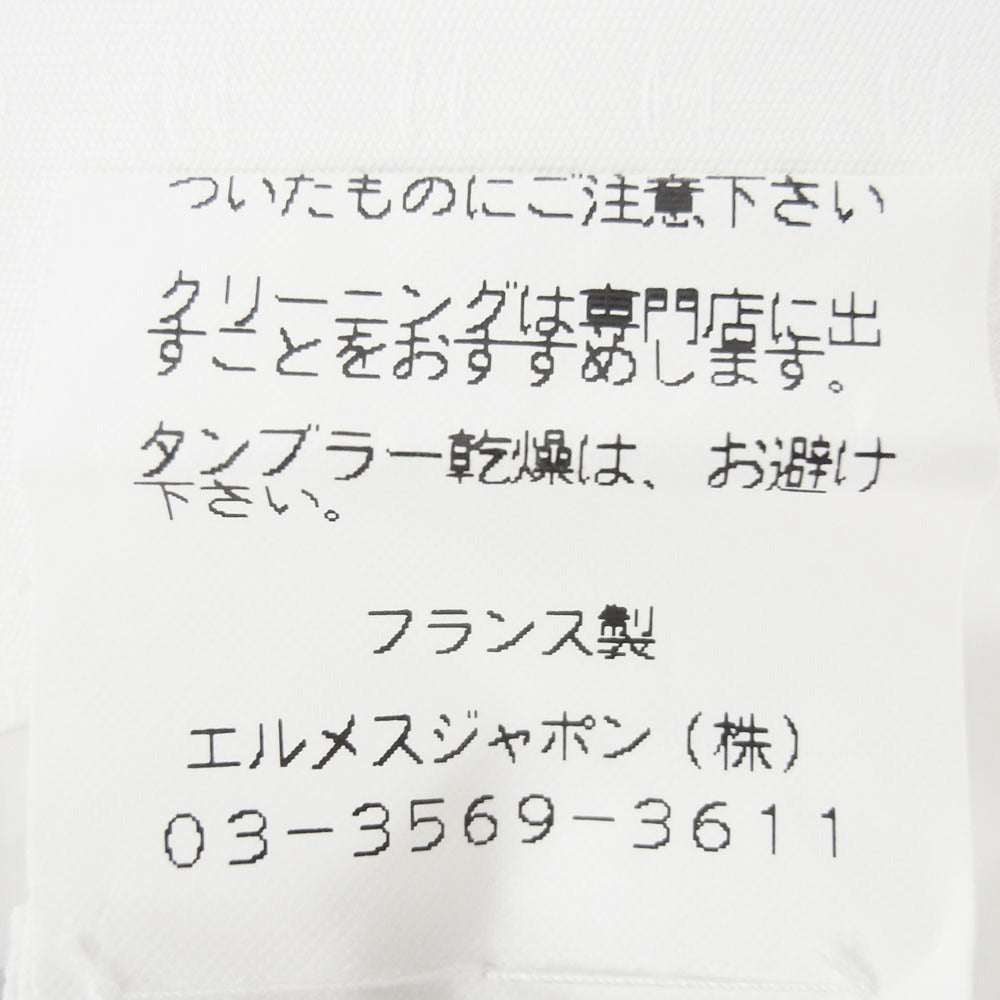 ついたものにご注意下さい
クリーニングは専門店に出
すことをおすすめします。
タンブラー乾燥は、お避け
下さい。
フランス製
エルメスジャポン(株)
03-3569-3611